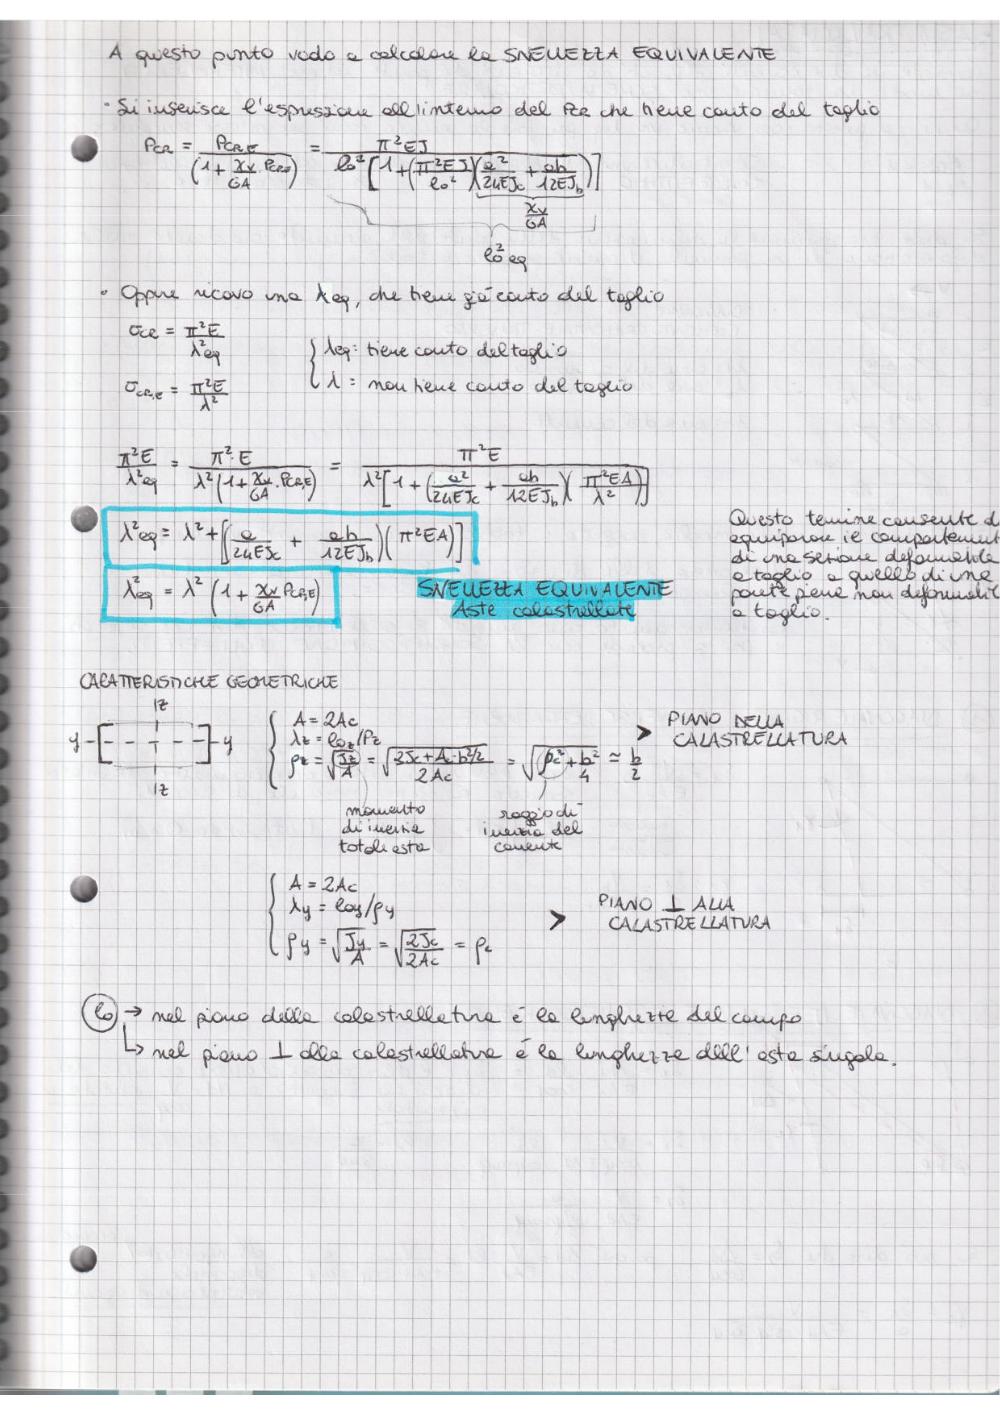 A questo punto vado a calcolare la SNELLEZZA EQUIVALENTE
• Si inserisce l'espressione all'interno del Pcr che tiene conto del taglio
P_CR = P_CR,E / (1 + χv/GA · P_CR,E) = π²EJ / l₀²[1 + (π²EJ/l₀²)(a²/24EJc + ab/12EJb)]
χv/GA
l₀² eq
• Oppure ricavo una λeq, che tiene già conto del taglio
σCR = π²E / λ²eq
{ λeq: tiene conto del taglio
σCR,E = π²E / λ²
λ = non tiene conto del taglio
π²E / λ²eq = π²·E / λ²(1 + χv/GA · P_CR,E) = π²E / λ²[1 + (a²/24EJc + ab/12EJb)(π²EA/λ²)]
λ²eq = λ² + [(a/24EJc + ab/12EJb)(π²EA)]
λ²eq = λ² (1 + χv/GA P_CR,E)
SNELLEZZA EQUIVALENTE
Aste calastrellate
Questo termine consente d
equiparare il comportament
di una sezione deformabile
a taglio a quello di una
parete piena non deformabil
a taglio.
CARATTERISTICHE GEOMETRICHE
z
y y
z
A = 2Ac
λz = l₀z/ρz
ρz = √(Jz/A) = √((2Jc + Ac·b²/2)/2Ac) = √(ρc² + b²/4) ≃ b/2
> PIANO DELLA
CALASTRELLATURA
momento
di inerzia
tot di asta
raggio di
inerzia del
corrente
A = 2Ac
λy = l₀y/ρy
ρy = √(Jy/A) = √(2Jc/2Ac) = ρc
> PIANO ⊥ ALLA
CALASTRELLATURA
l₀ → nel piano della calastrellatura è la lunghezza del campo
↳ nel piano ⊥ alla calastrellatura è la lunghezza dell'asta singola.